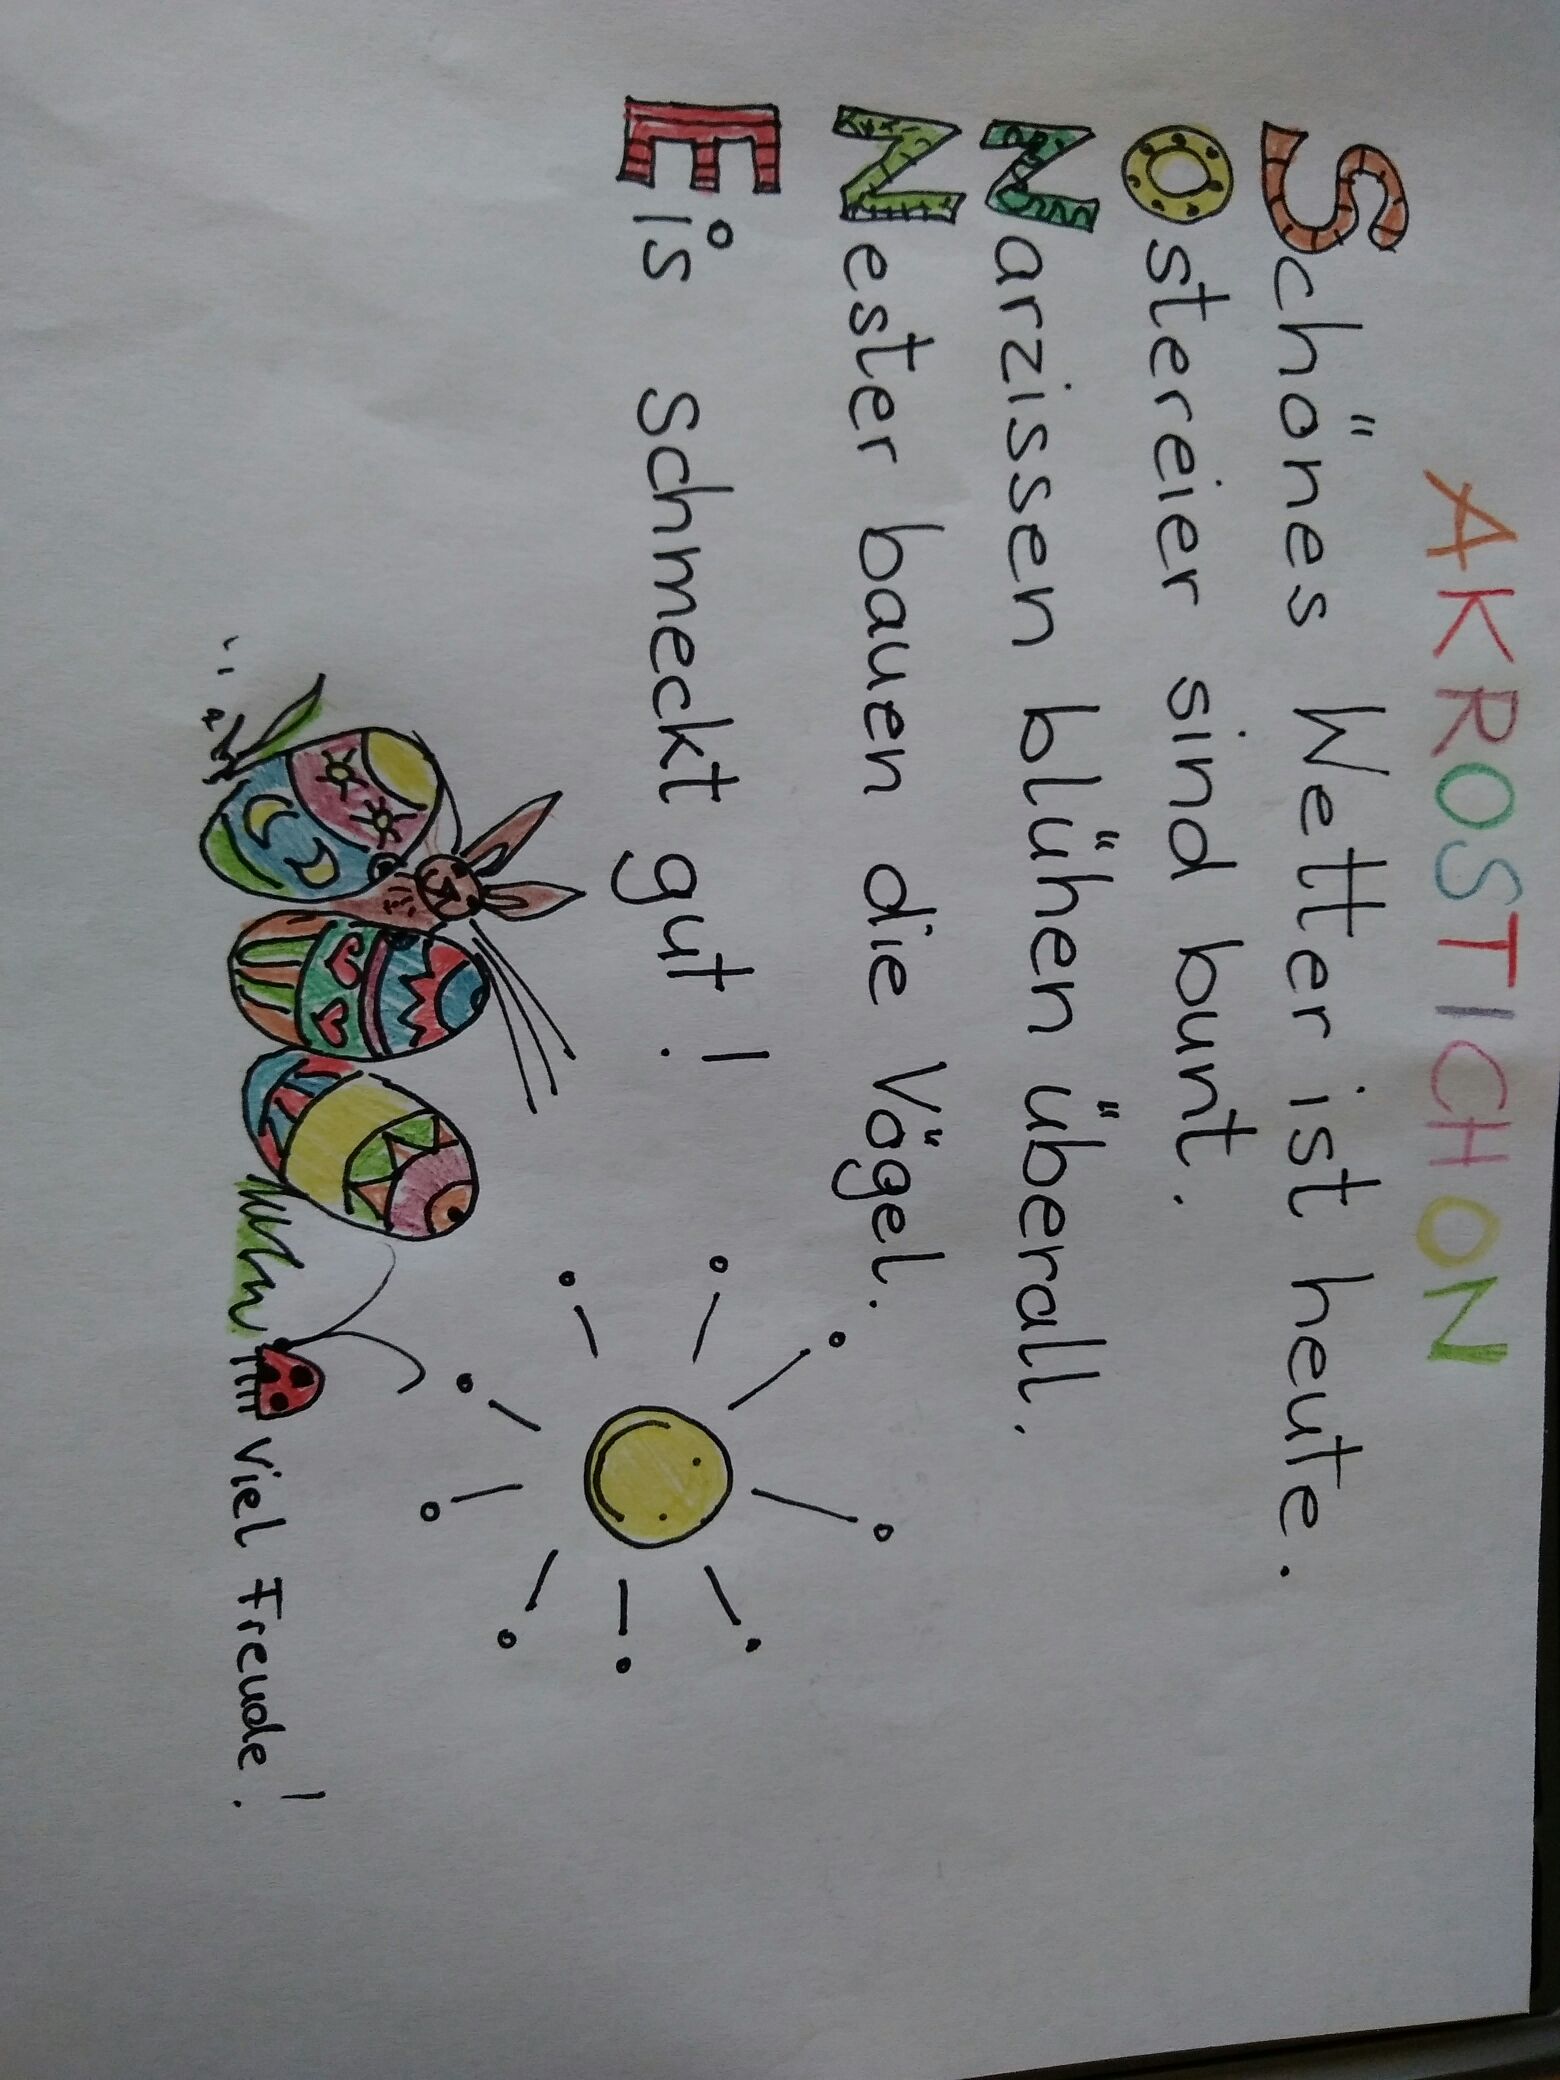 AKROSTICHON
Schönes Wetter ist heute.
Ostereier sind bunt.
Narzissen blühen überall.
Nester bauen die Vögel.
Eis schmeckt gut!
Viel Freude!